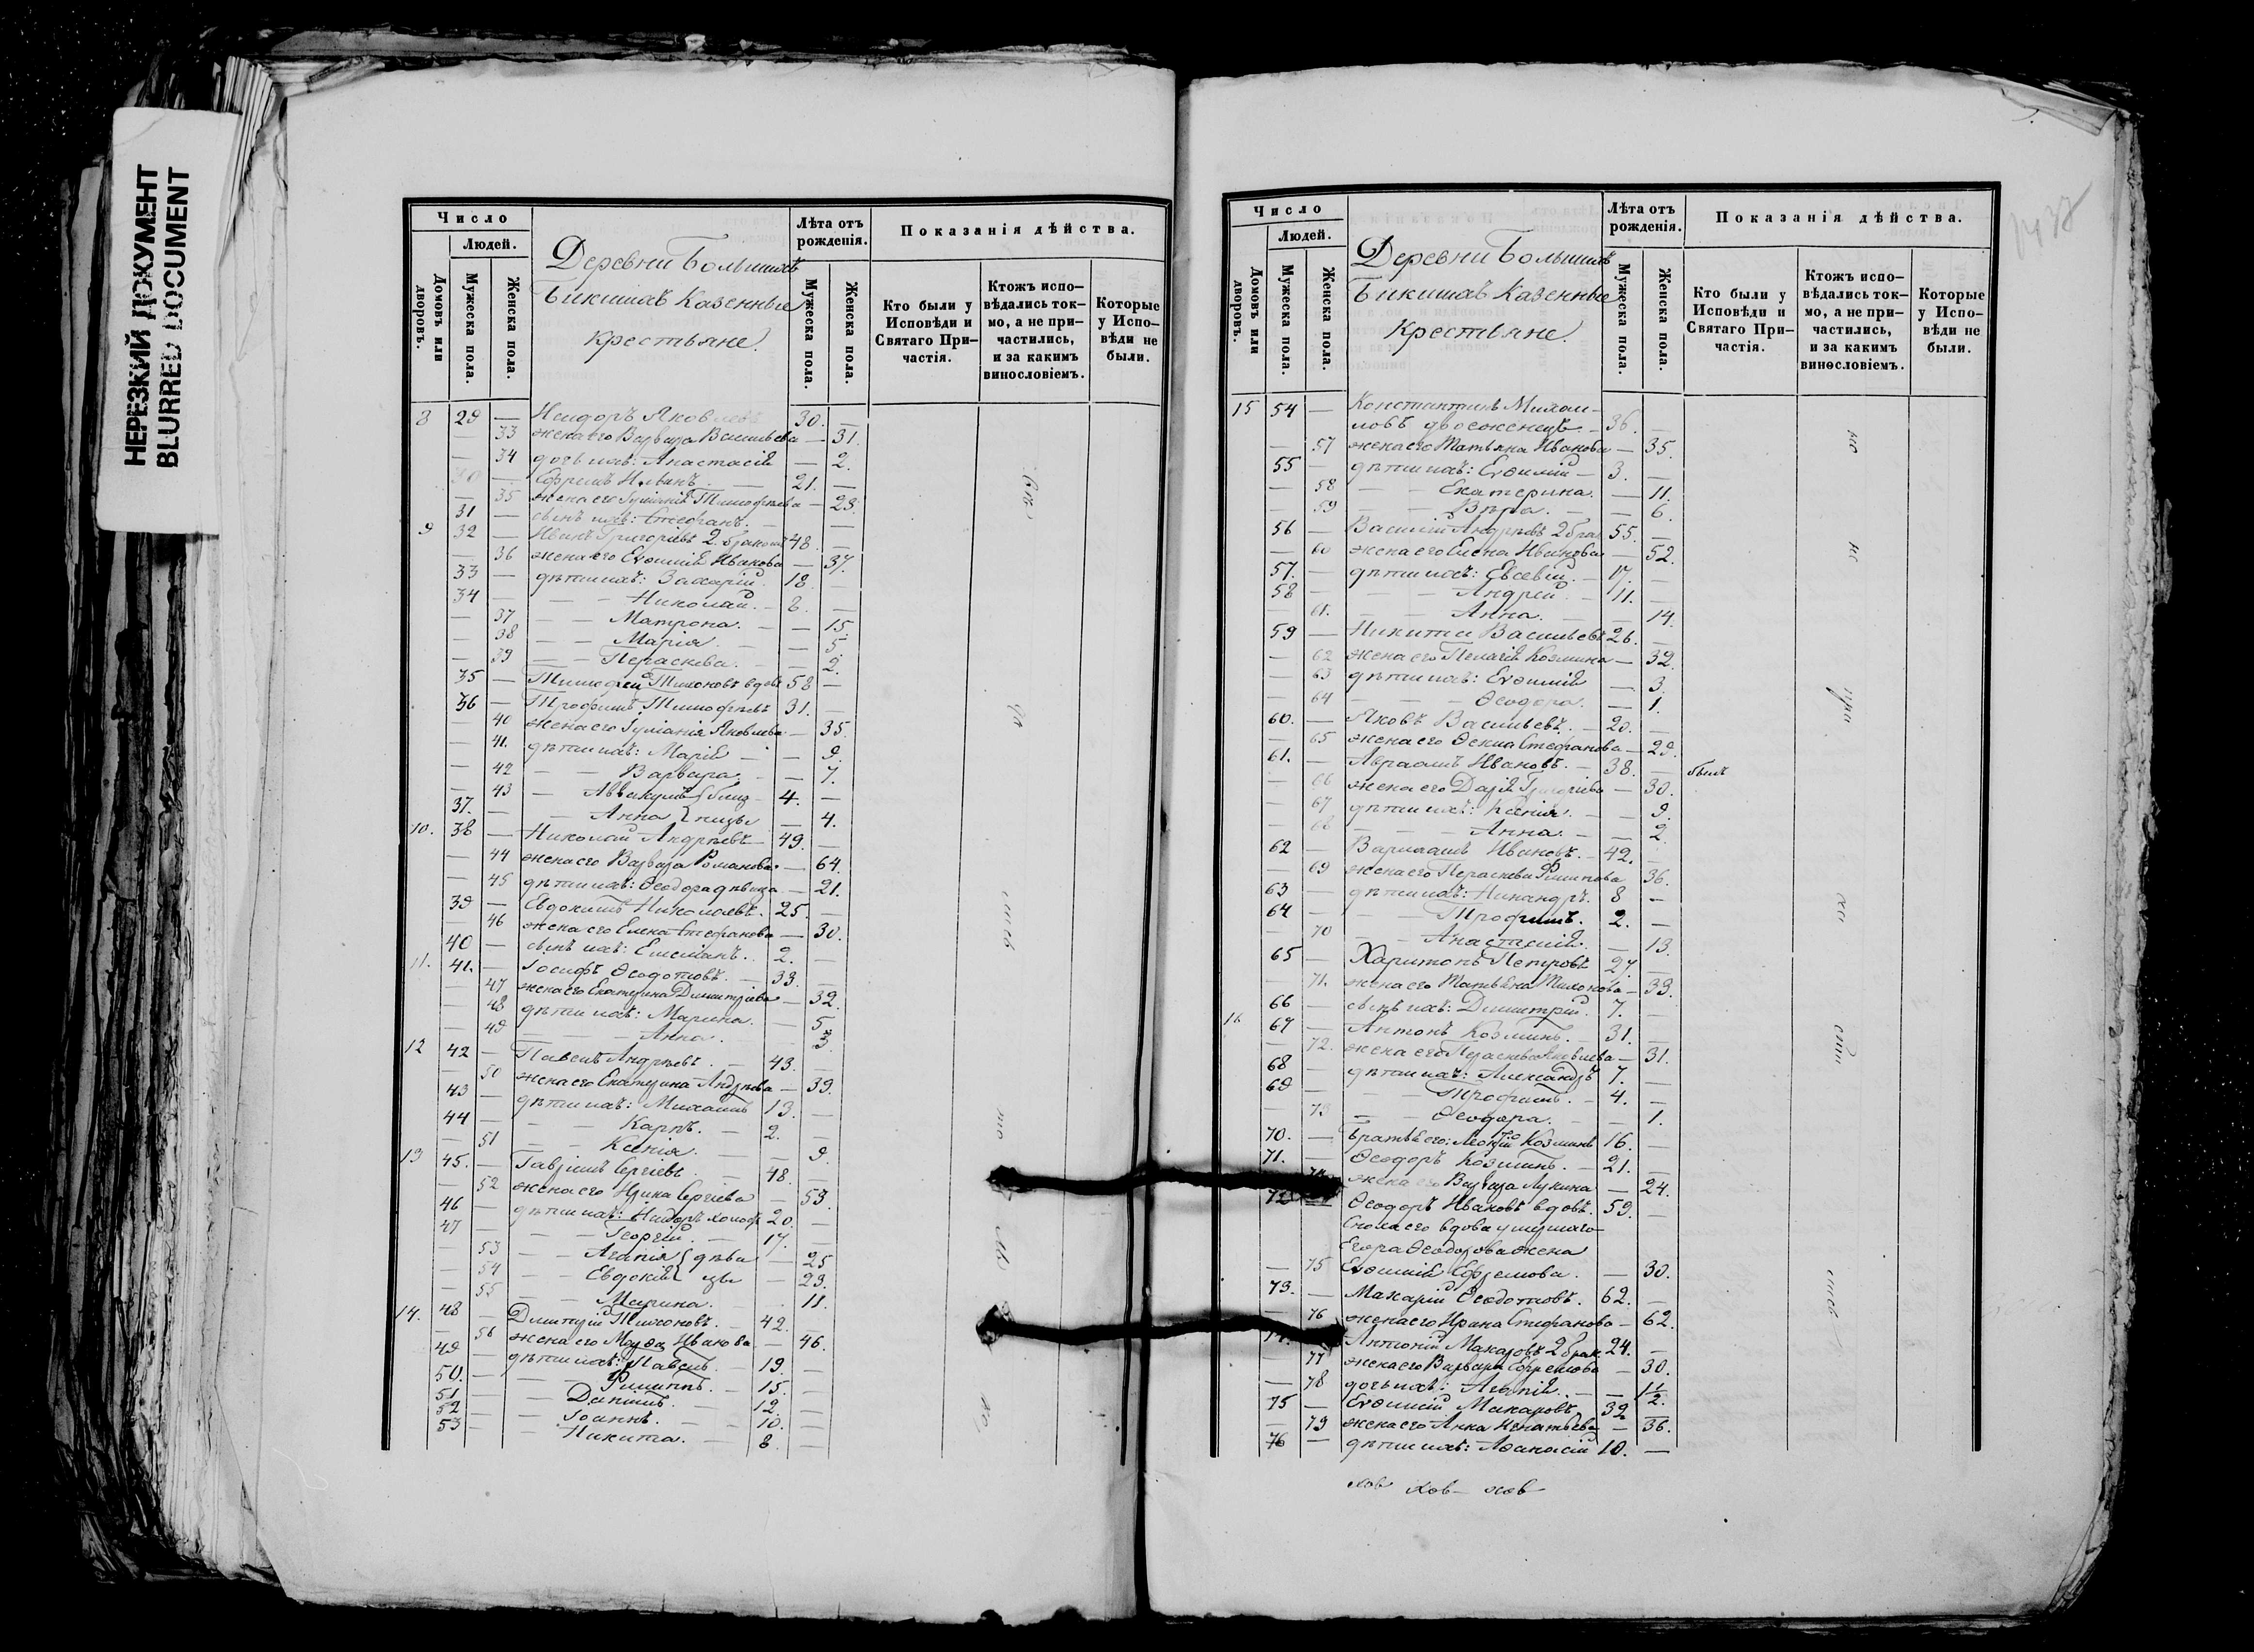 НЕРЕЗКИЙ ДОКУМЕНТ
BLURRED DOCUMENT
Число
Людей.
Домовъ или дворовъ.
Мужеска пола.
Женска пола.
Деревни Большихъ
Бикшихъ Казенные
Крестьяне.
Лѣта отъ рожденія.
Мужеска пола.
Женска пола.
Показанія дѣйства.
Кто были у Исповѣди и Святаго При-частія.
Ктожъ испо-вѣдались ток-мо, а не при-частились, и за какимъ винословіемъ.
Которые у Испо-вѣди не были.
8 29 — Исидоръ Яковлевъ 30. —
— 33 жена его Варвара Васильева — 31.
— 34 дочь ихъ: Анастасія — 2.
30 — Ефремъ Ильинъ — 21. —
— 35 жена его Тимофѣева — 23.
31 — сынъ ихъ: Стефанъ. — —
9 32 — Иванъ Григорьевъ 2. бракомъ 48. —
— 36 жена его Евфимія Иванова — 37.
33 — дѣти ихъ: Захарій. 18. —
34 — — — Николай. — 8. —
— 37 — — Матрона. — — 15
— 38 — — Марія. — — 5.
— 39 — — Параскева. — — 2.
35 — Тимофей Тихоновъ вдовъ 58 —
36 — Трофимъ Тимофѣевъ 31. —
— 40 жена его Іуліанія Яковлева — 35.
— 41. дѣти ихъ: Марія — — 9.
— 42 — — Варвара. — — 7.
— 43 — Аввакумъ { близ- 4. —
37. — — Анна } нецы — 4.
10. 38 — Николай Андрѣевъ — 49. —
— 44 жена его Варвара Романова — 64.
— 45 дѣти ихъ: Ѳеодора дѣвица — 21.
39 — Евдокимъ Николаевъ. 25. —
— 46 жена его Елена Стефанова — 30.
40 — сынъ ихъ: Емеліанъ. 2. —
11. 41. — Іосифъ Ѳеодотовъ. — 33. —
— 47 жена его Екатерина Димитріева — 32.
— 48 дѣти ихъ: Марина. — 5
— 49 — — — Анна. — 3.
12 42 — Павелъ Андрѣевъ. — 43. —
— 50 жена его Екатерина Андрѣева — 39.
43 — дѣти ихъ: Михаилъ 13. —
44 — — — Карпъ. — 2. —
— 51 — — Ксенія. — — 9.
13 45. — Гавріилъ Сергіевъ — 48. —
— 52 жена его Ирина Сергіева — 53.
46 — дѣти ихъ: Исидоръ холост 20. —
47 — — — Георгій. — 17. —
— 53 — — Агапія { дѣви — 25
— 54 — — Евдокія { цы — 23.
— 55 — — Марина. 11.
14. 48 — Димитрій Тихоновъ. — 42. —
— 56 жена его Марѳа Иванова — 46.
49 — дѣти ихъ: Павелъ. — 19. —
50. — — — Филиппъ. — 15. —
51 — — Даніилъ. — 12. —
52 — — Іоаннъ. — 10. —
53 — — Никита. — 8. —
Число
Людей.
Домовъ или дворовъ.
Мужеска пола.
Женска пола.
Деревни Большихъ
Бикшихъ Казенные
Крестьяне.
Лѣта отъ рожденія.
Мужеска пола.
Женска пола.
Показанія дѣйства.
Кто были у Исповѣди и Святаго При-частія.
Ктожъ испо-вѣдались ток-мо, а не при-частились, и за какимъ винословіемъ.
Которые у Испо-вѣди не были.
15 54 — Константинъ Михаи-
ловъ двоеженецъ — 36. —
— 57 жена его Татьяна Иванова — 35.
55 — дѣти ихъ: Евѳимій — 3. —
— 58 — — Екатерина. — 11.
— 59 — — Вѣра. — — 6.
56 — Василій Андрѣевъ 2 брак 55. —
— 60 жена его Елена Иванова — 52.
57. — дѣти ихъ: Евсевій. — 17. —
58 — — — Андрей. — 11. —
— 61. — — Анна. — — 14.
59 — Никита Васильевъ 26. —
— 62 жена его Пелагія Козмина — 32.
— 63 дѣти ихъ: Евѳимія — 3.
— 64 — — — Ѳеодора. — 1.
60. — Яковъ Васильевъ. — 20. —
— 65 жена его Ѳекла Стефанова — 29.
61. — Авраамъ Ивановъ. — 38. — былъ
— 66 жена его Дарія Григорьева — 30.
— 67 дѣти ихъ: Ксенія. — — 9.
— 68 — — — Анна. — — 2.
62 — Варлаамъ Ивановъ. — 42. —
— 69 жена его Параскева Филипова 36.
63 — дѣти ихъ: Никандръ. 8 —
64 — — — Трофимъ. 2. —
— 70 — — Анастасія. — 13.
65 — Харитонъ Петровъ 27. —
— 71. жена его Татьяна Тихонова — 33.
66 — сынъ ихъ: Димитрій. 7. —
16 67 — Антонъ Козминъ. — 31. —
— 72. жена его Параскева Яковлева — 31.
68 — дѣти ихъ: Александръ 7. —
69 — — — Трофимъ. — 4. —
— 73 — — Ѳеодора. — — 1.
70. — Братья его: Леонтій Козминъ 16. —
71. — Ѳеодоръ Козминъ. — 21. —
— 74 жена его Варвара Лукина — 24.
72 — Ѳеодоръ Ивановъ вдовъ. 59. —
Сноха его вдова умершаго
Егора Ѳеодорова жена
— 75 Евѳимія Ефремова. — 30.
73. — Макарій Ѳеодотовъ. 62. —
— 76 жена его Ирина Стефанова — 62.
74. — Антоній Макаровъ 2 брак. 24. —
— 77 жена его Варвара Ефремова — 30.
— 78 дочь ихъ: Агапія. — — 1½.
75 — Евѳимій Макаровъ. 32 —
— 79 жена его Анна Игнатьева — 36.
76 — дѣти ихъ: Аѳанасій 10. —